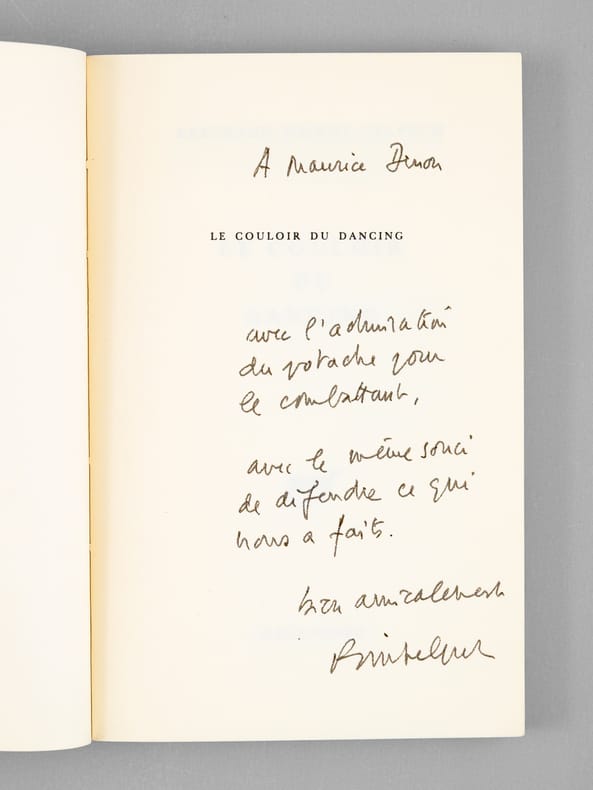 A Maurice Denon
LE COULOIR DU DANCING
avec l'admiration
du potache pour
le combattant,
avec le même souci
de défendre ce qui
nous a faits.
bien amicalement